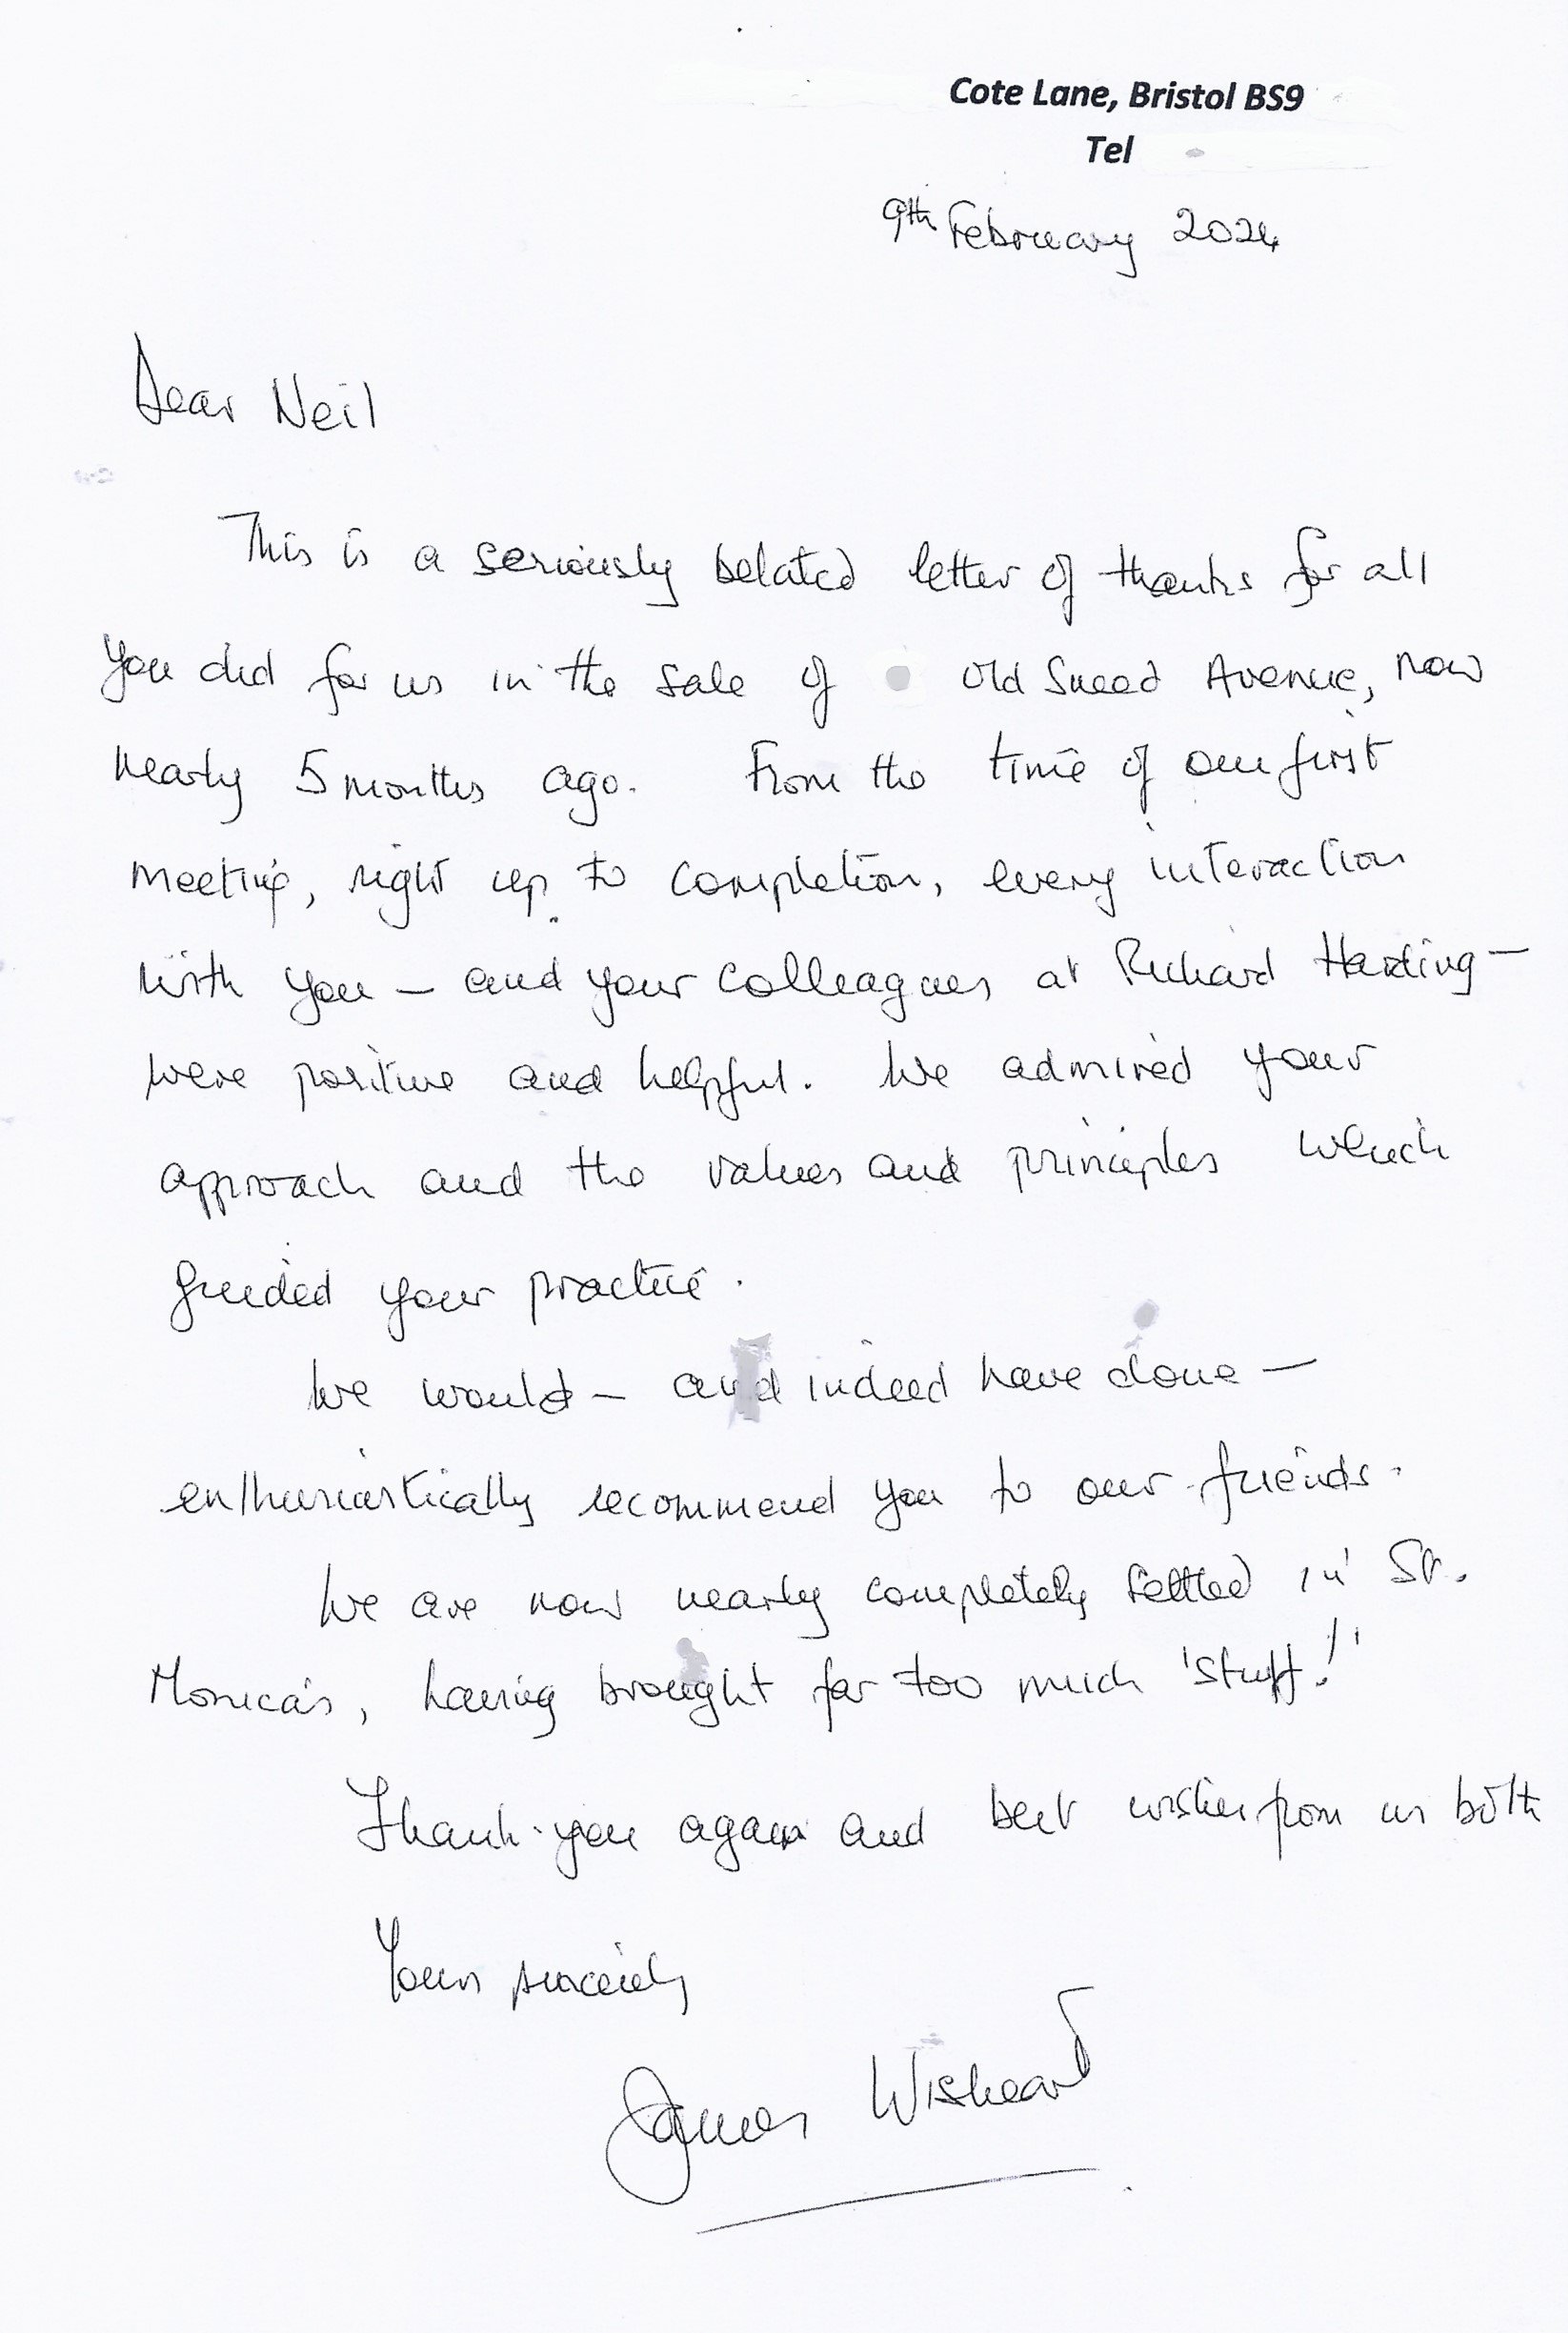 Cote Lane, Bristol BS9
Tel
9th February 2024
Dear Neil
This is a seriously belated letter of thanks for all
you did for us in the sale of Old Sneed Avenue, now
nearly 5 months ago. From the time of our first
meeting, right up to completion, every interaction
with you — and your colleagues at Richard Harding —
were positive and helpful. We admired your
approach and the values and principles which
guided your practice.
We would — and indeed have done —
enthusiastically recommend you to our friends.
We are now nearly completely settled in St.
Monica's, having brought far too much 'stuff!'
Thank-you again and best wishes from us both
Yours sincerely
James Wisheart